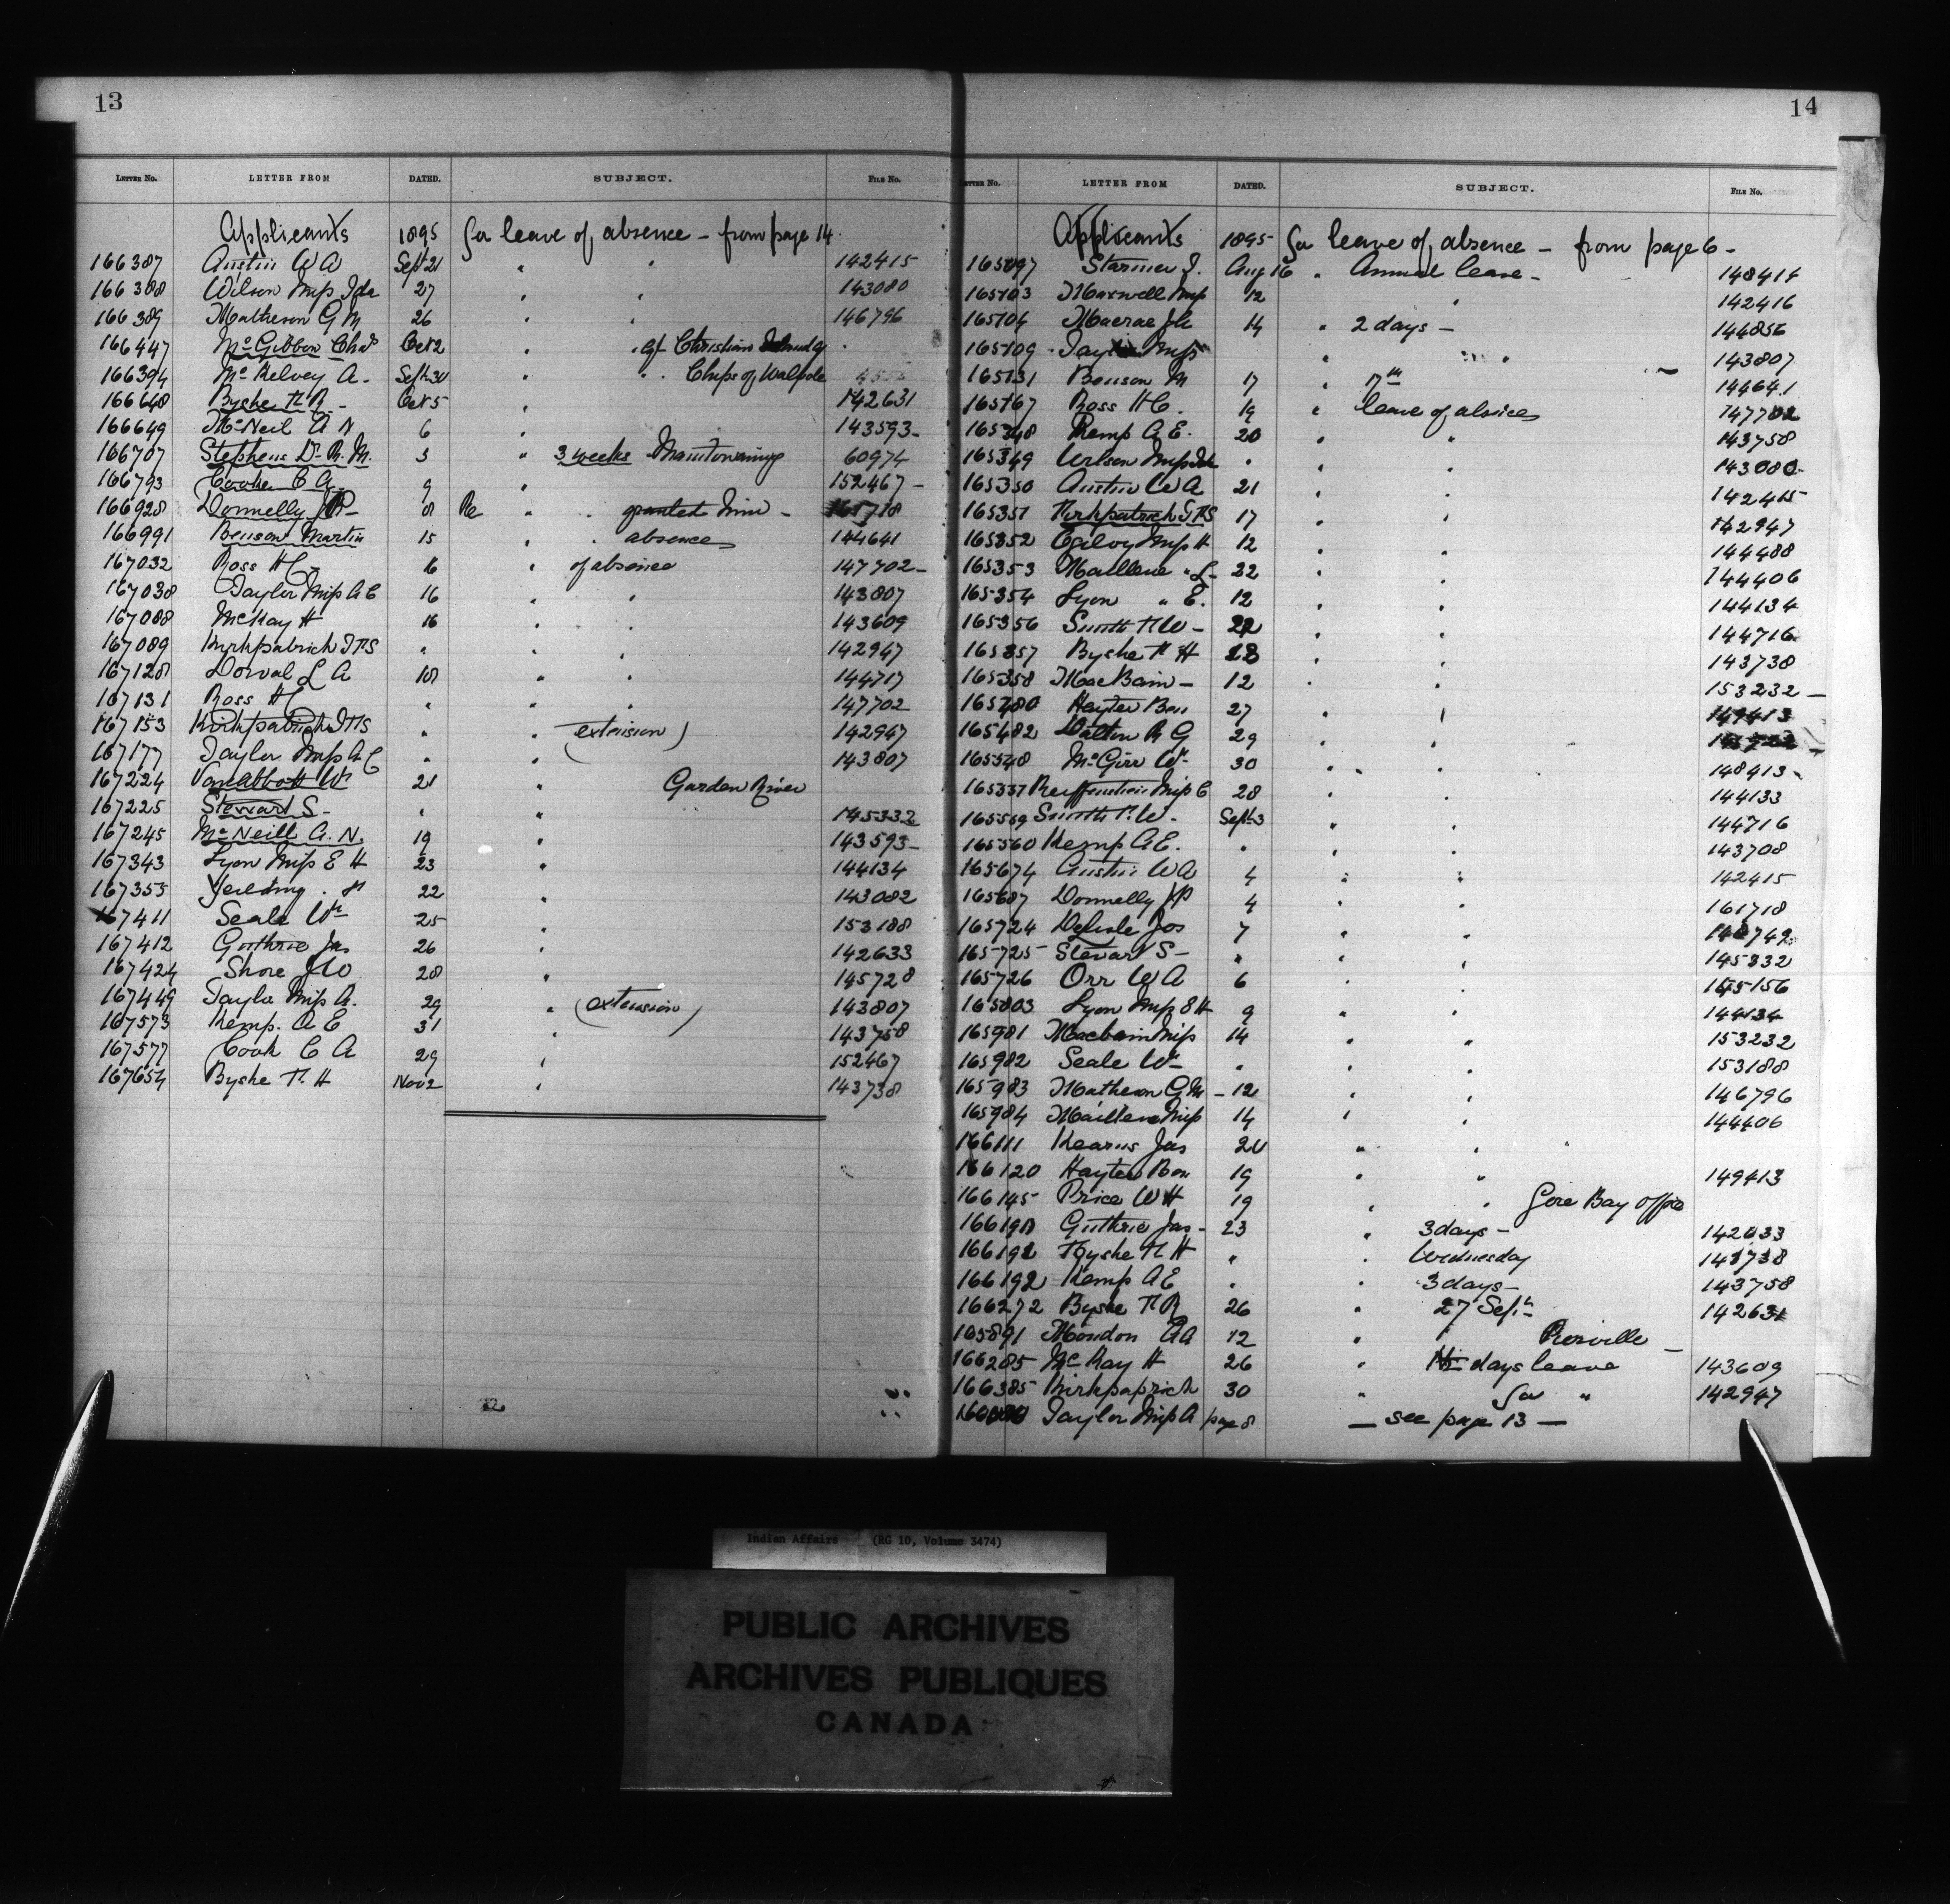 13
LETTER No. LETTER FROM DATED. SUBJECT. FILE No.
Applicants 1895 for leave of absence – from page 14.
166387 Austin W A Sept 21 " " 142415
166388 Wilson Miss Ida 27 " " 143080
166389 Matheson G M 26 " " 146796
166447 McGibbon Chas Oct 2 " of Christian
166394 McKelvey A. Sept 30 " " Chips of Walpole
166648 Byshe F. R. – Oct 5 " 142631
166649 McNeil A N 6 " 143593–
166707 Stephens Dr R. M. 3 " 3 weeks Manitowaning 60974
166793 Cooke C A. 9 " 152467–
166928 Donnelly J P – 8 Re " " granted him –
166991 Benson Martin 15 " " absence 144641
167032 Ross H C – 16 " of absence 147702–
167038 Taylor Miss A C 16 " " 143807
167088 McKay H 16 " " 143609
167089 Kirkpatrick J F S " " " 142947
167128 Dorval L A 18 " " 144717
167131 Ross H C " " " 147702
167153 Kirkpatrick J F S " " (extension) 142947
167177 Taylor Miss A C " " 143807
167224 VanAbbott W 21 " Garden River
167225 Stewart S – " " 145332
167245 McNeill A. N. 19 " 143593–
167343 Lyon Miss E H 23 " 144134
167355 Yeilding . 22 " 143082
167411 Seale Wm 25 " 153188
167412 Guthrie Jas 26 " 142633
167424 Shore J W 28 " 145728
167449 Taylor Miss A. 29 " (extension) 143807
167573 Kemp. A E 31 " 143758
167577 Cook C A 29 " 152467
167654 Byshe F. H Nov 2 " 143738
14
LETTER No. LETTER FROM DATED. SUBJECT. FILE No.
Applicants 1895– for leave of absence – from page 6–
165097 Starmer J. Aug 16 " Annual leave – 148414
165103 Maxwell Miss 12 " 142416
165104 Macrae J A 14 " 2 days – 144856
165109 Taylor Miss " " 143807
165131 Benson M 17 " 17th 144641
165167 Ross H C. 19 " leave of absence 147702
165348 Kemp A E. 20 " " 143758
165349 Wilson Miss Ida " " " 143080
165350 Austin W A 21 " " 142415
165351 Kirkpatrick J F S 17 " " 142947
165352 Ogilvy Miss H 12 " " 144488
165353 Maillene " L – 22 " " 144406
165354 Lyon " E. 12 " " 144134
165356 Smith F. W – 22 " " 144716
165357 Byshe F H 23 " " 143738
165358 MacBain – 12 " " 153232–
165480 Hayter Ben 27 " " 149413
165482 Dalton R G 29 " "
165548 McGirr Wm 30 " " 148413
165537 Reiffenstein Miss C 28 " " 144133
165559 Smith F. W. Sept 3 " " 144716
165560 Kemp A E. " " " 143708
165674 Austin W A 4 " " 142415
165687 Donnelly J P 4 " " 161718
165724 Delisle Jos 7 " "
165725 Stewart S – " " " 145332
165726 Orr W A 6 " " 145156
165803 Lyon Miss E H 9 " " 144134
165981 Macbain Miss 14 " " 153232
165982 Seale Wm " " " 153188
165983 Matheson G M – 12 " " 146796
165984 Maillene Miss 14 " " 144406
166111 Kearns Jas 20 " "
166120 Hayter Ben 19 " " 149413
166145 Price W H 19 " " Gore Bay Office
166190 Guthrie Jas – 23 " 3 days – 142633
166192 Byshe F. H " " Wednesday 143738
166192 Kemp A E " " 3 days – 143758
166272 Byshe F R 26 " 27 Sept 142631
165891 Mondon A A 12 " "
166285 McKay H 26 " days leave 143609
166385 Kirkpatrick 30 " for " 142947
Taylor Miss A page 8 — see page 13 —
Indian Affairs (RG 10, Volume 3474)
PUBLIC ARCHIVES
ARCHIVES PUBLIQUES
CANADA